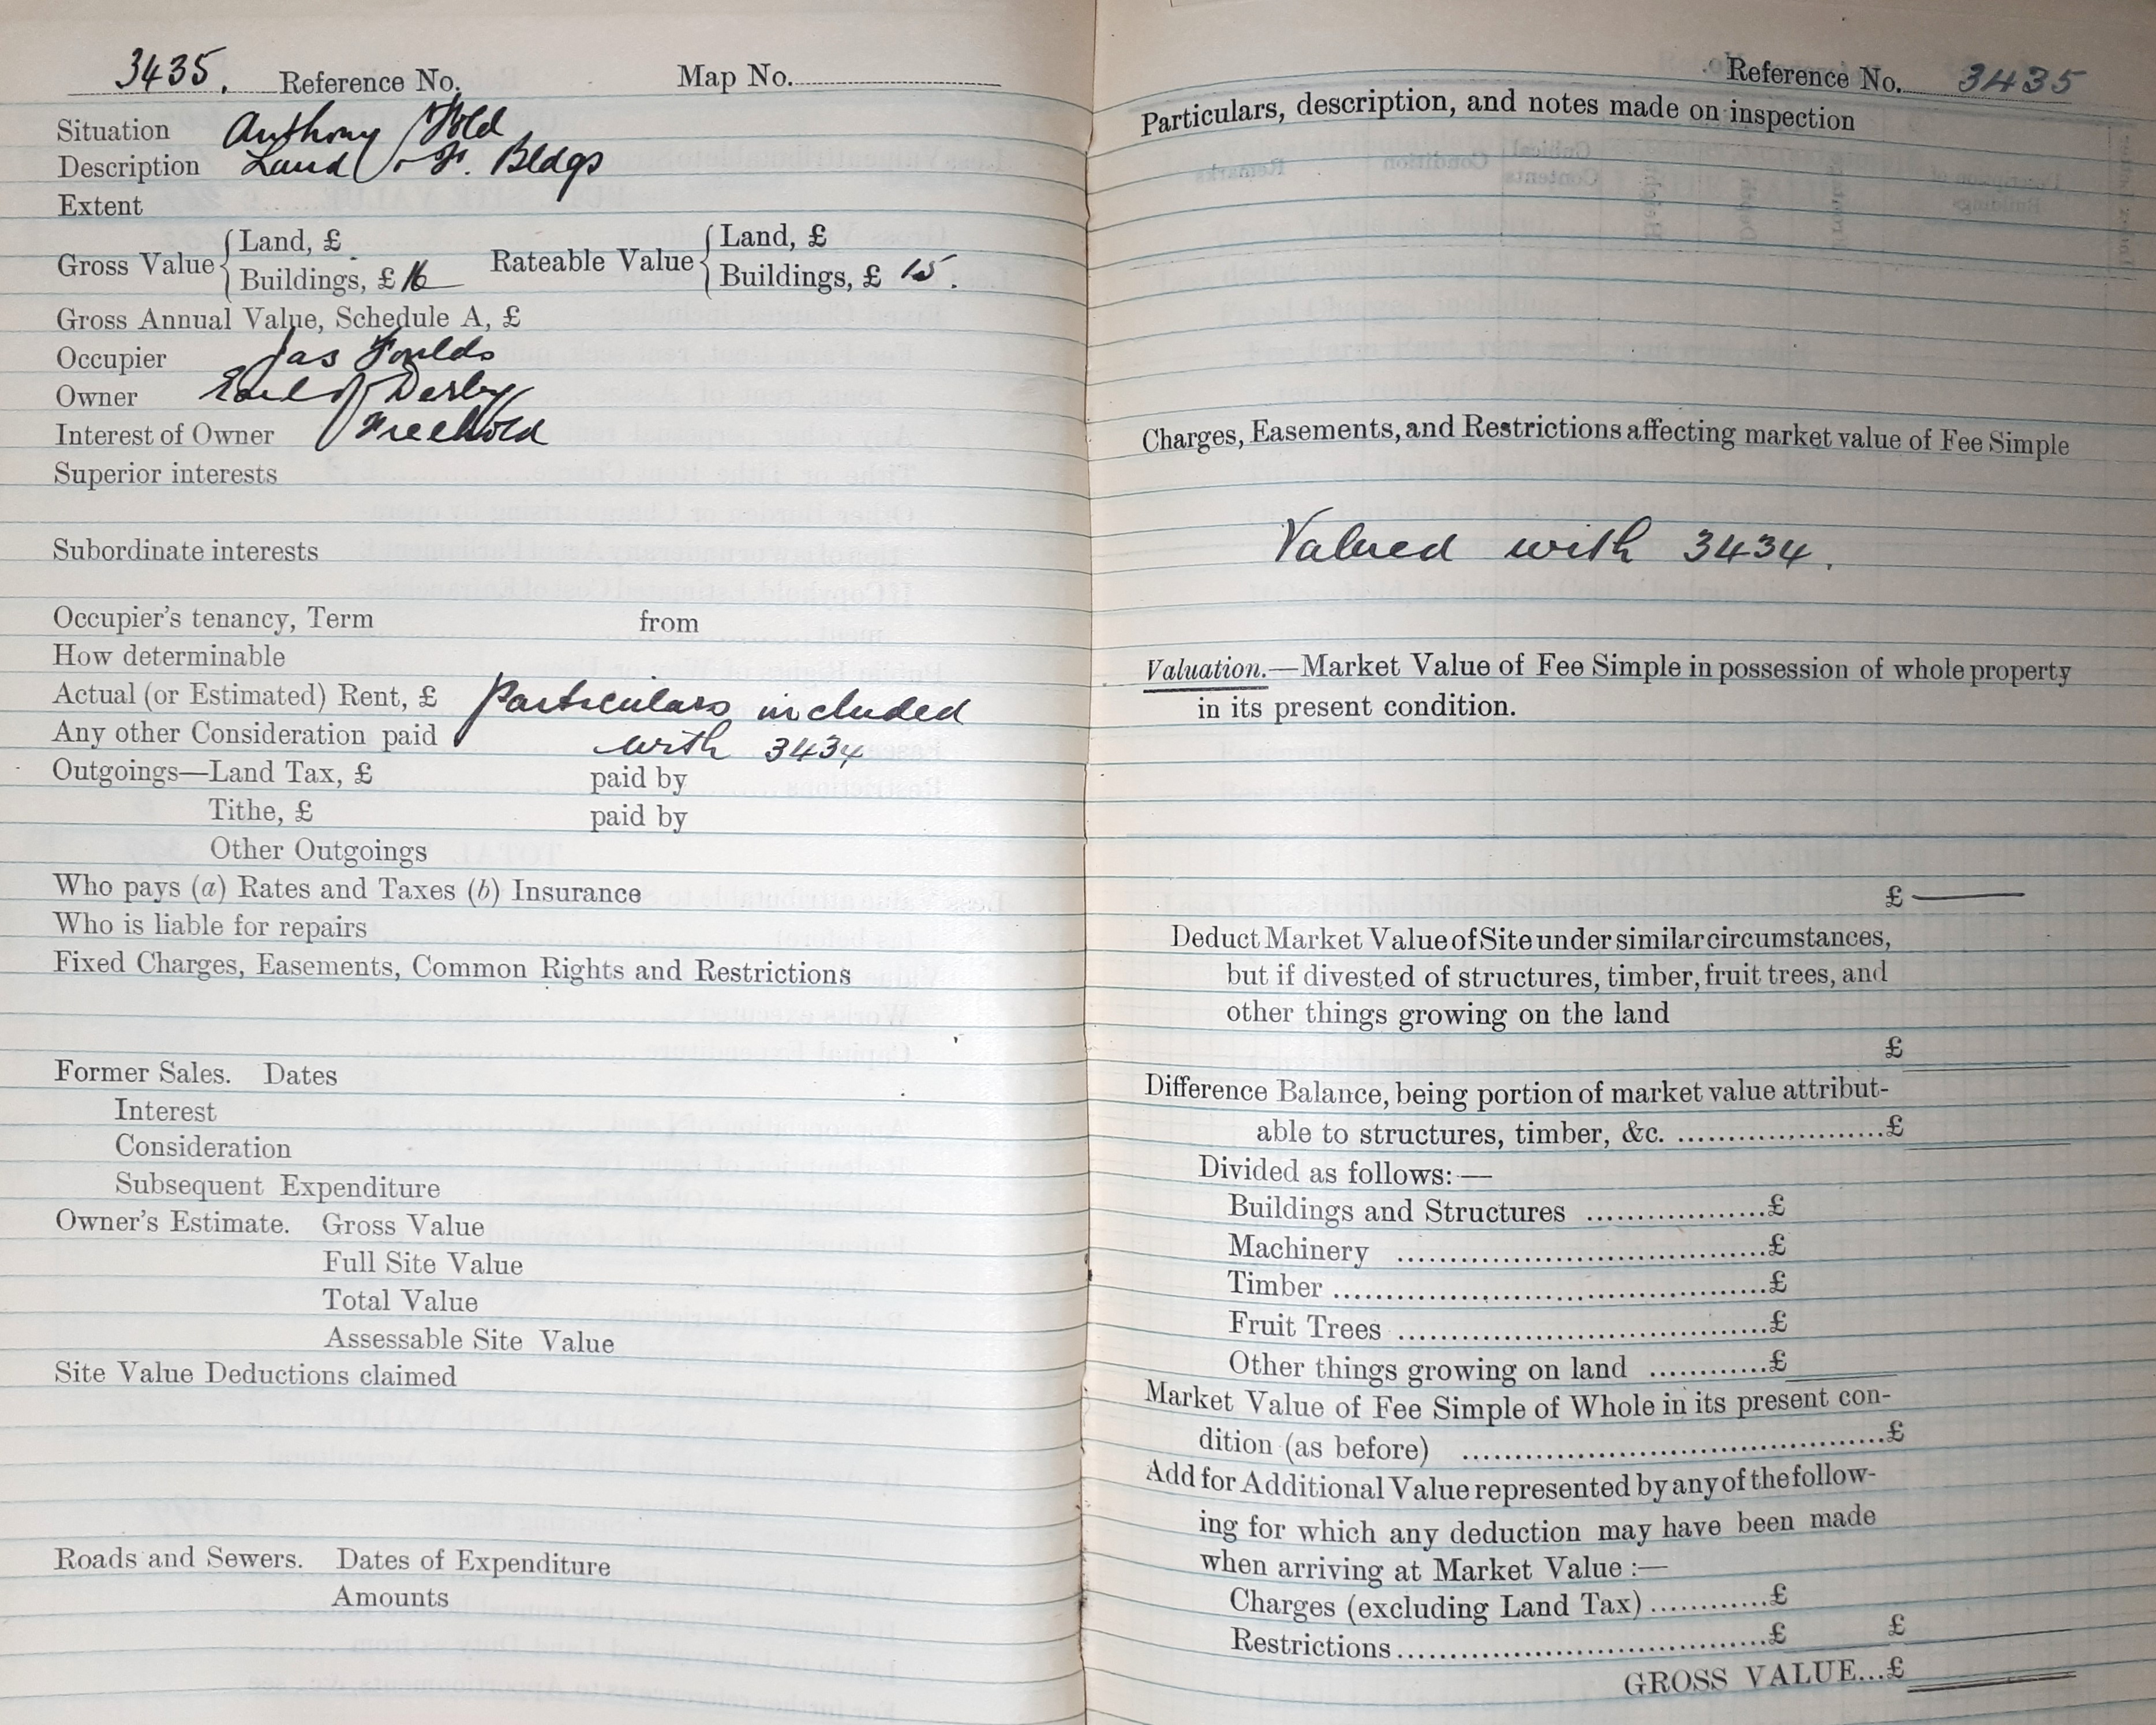 3435. Reference No. Map No.
Situation Anthony Fold
Description Land & F. Bldgs
Extent
Gross Value { Land, £ Rateable Value { Land, £
Buildings, £ 16 Buildings, £ 15.
Gross Annual Value, Schedule A, £
Occupier Jas Foulds
Owner Earl of Derby
Interest of Owner Freehold
Superior interests
Subordinate interests
Occupier's tenancy, Term from
How determinable
Actual (or Estimated) Rent, £ Particulars included
Any other Consideration paid with 3434
Outgoings—Land Tax, £ paid by
Tithe, £ paid by
Other Outgoings
Who pays (a) Rates and Taxes (b) Insurance
Who is liable for repairs
Fixed Charges, Easements, Common Rights and Restrictions
Former Sales. Dates
Interest
Consideration
Subsequent Expenditure
Owner's Estimate. Gross Value
Full Site Value
Total Value
Assessable Site Value
Site Value Deductions claimed
Roads and Sewers. Dates of Expenditure
Amounts
Reference No. 3435
Particulars, description, and notes made on inspection
Charges, Easements, and Restrictions affecting market value of Fee Simple
Valued with 3434.
Valuation.—Market Value of Fee Simple in possession of whole property
in its present condition.
£ —
Deduct Market Value of Site under similar circumstances,
but if divested of structures, timber, fruit trees, and
other things growing on the land
£
Difference Balance, being portion of market value attribut-
able to structures, timber, &c. ......................£
Divided as follows:—
Buildings and Structures ..................£
Machinery ......................................£
Timber .............................................£
Fruit Trees ......................................£
Other things growing on land ............£
Market Value of Fee Simple of Whole in its present con-
dition (as before) ............................................£
Add for Additional Value represented by any of the follow-
ing for which any deduction may have been made
when arriving at Market Value :—
Charges (excluding Land Tax) ............£
Restrictions ......................................£ £
GROSS VALUE...£